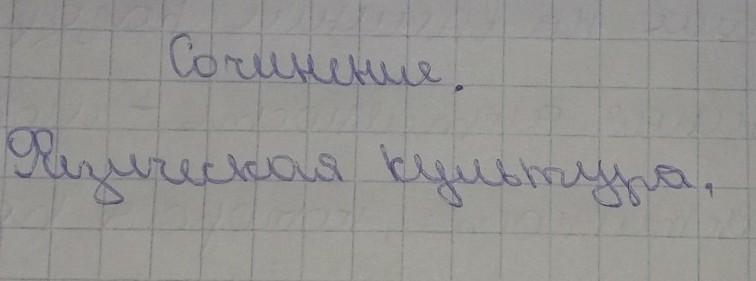 Сочинение.
Физическая культура,